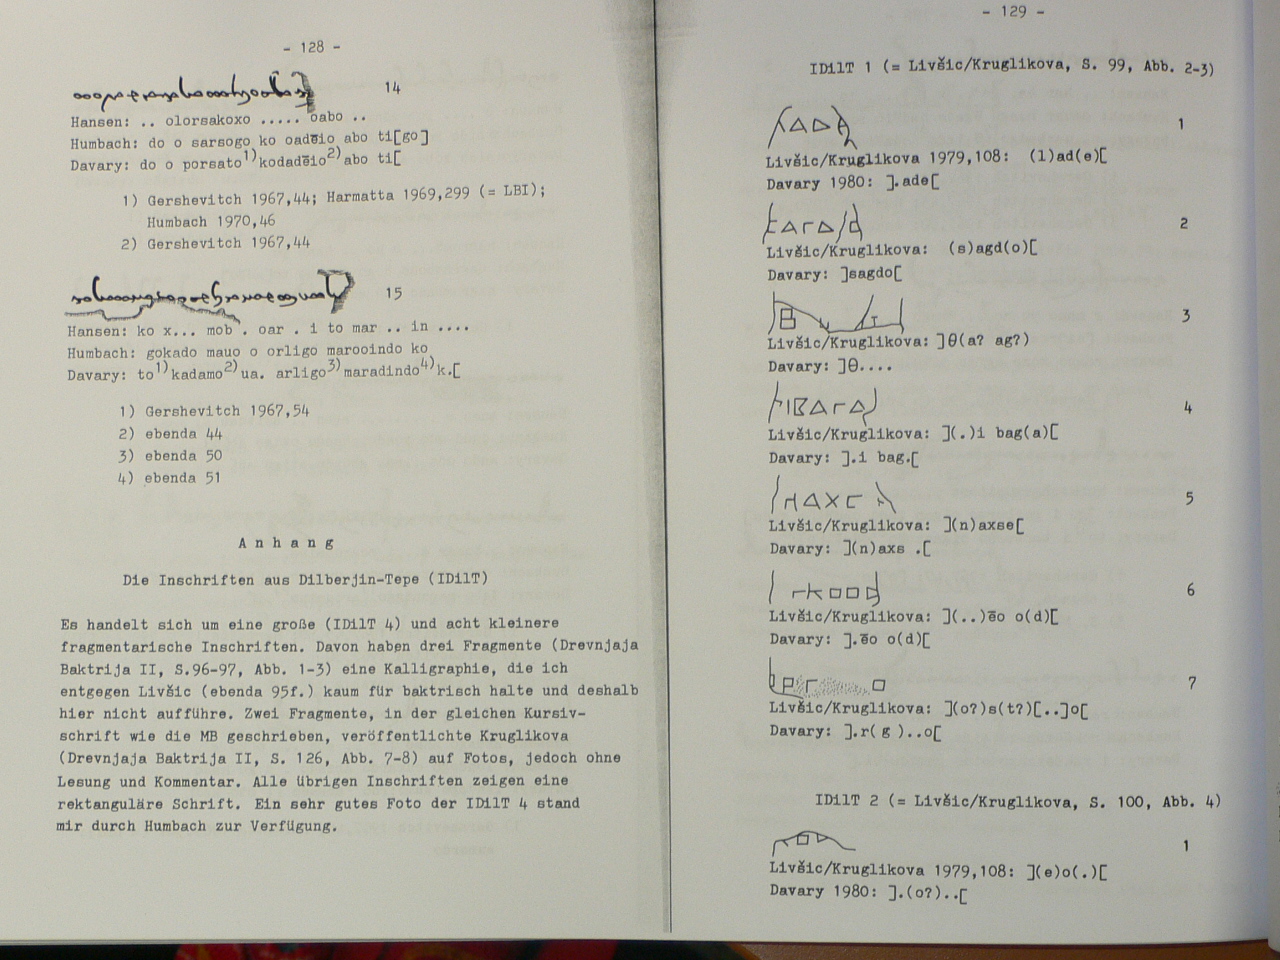 - 128 -
14
Hansen: .. olorsakoxo ..... oabo ..
Humbach: do o sarsogo ko oadēio abo ti[go]
Davary: do o porsato1)kodadēio2)abo ti[
1) Gershevitch 1967,44; Harmatta 1969,299 (= LBI);
Humbach 1970,46
2) Gershevitch 1967,44
15
Hansen: ko x... mob . oar . i to mar .. in ....
Humbach: gokado mauo o orligo marooindo ko
Davary: to1)kadamo2)ua. arligo3)maradindo4)k.[
1) Gershevitch 1967,54
2) ebenda 44
3) ebenda 50
4) ebenda 51
A n h a n g
Die Inschriften aus Dilberjin-Tepe (IDilT)
Es handelt sich um eine große (IDilT 4) und acht kleinere
fragmentarische Inschriften. Davon haben drei Fragmente (Drevnjaja
Baktrija II, S.96-97, Abb. 1-3) eine Kalligraphie, die ich
entgegen Livšic (ebenda 95f.) kaum für baktrisch halte und deshalb
hier nicht aufführe. Zwei Fragmente, in der gleichen Kursiv-
schrift wie die MB geschrieben, veröffentlichte Kruglikova
(Drevnjaja Baktrija II, S. 126, Abb. 7-8) auf Fotos, jedoch ohne
Lesung und Kommentar. Alle übrigen Inschriften zeigen eine
rektanguläre Schrift. Ein sehr gutes Foto der IDilT 4 stand
mir durch Humbach zur Verfügung.
- 129 -
IDilT 1 (= Livšic/Kruglikova, S. 99, Abb. 2-3)
1
Livšic/Kruglikova 1979,108: (l)ad(e)[
Davary 1980: ].ade[
2
Livšic/Kruglikova: (s)agd(o)[
Davary: ]sagdo[
3
Livšic/Kruglikova: ]θ(a? ag?)
Davary: ]θ....
4
Livšic/Kruglikova: ](.)i bag(a)[
Davary: ].i bag.[
5
Livšic/Kruglikova: ](n)axse[
Davary: ](n)axs .[
6
Livšic/Kruglikova: ](..)ēo o(d)[
Davary: ].ēo o(d)[
7
Livšic/Kruglikova: ](o?)s(t?)[..]o[
Davary: ].r( g )..o[
IDilT 2 (= Livšic/Kruglikova, S. 100, Abb. 4)
1
Livšic/Kruglikova 1979,108: ](e)o(.)[
Davary 1980: ].(o?)..[